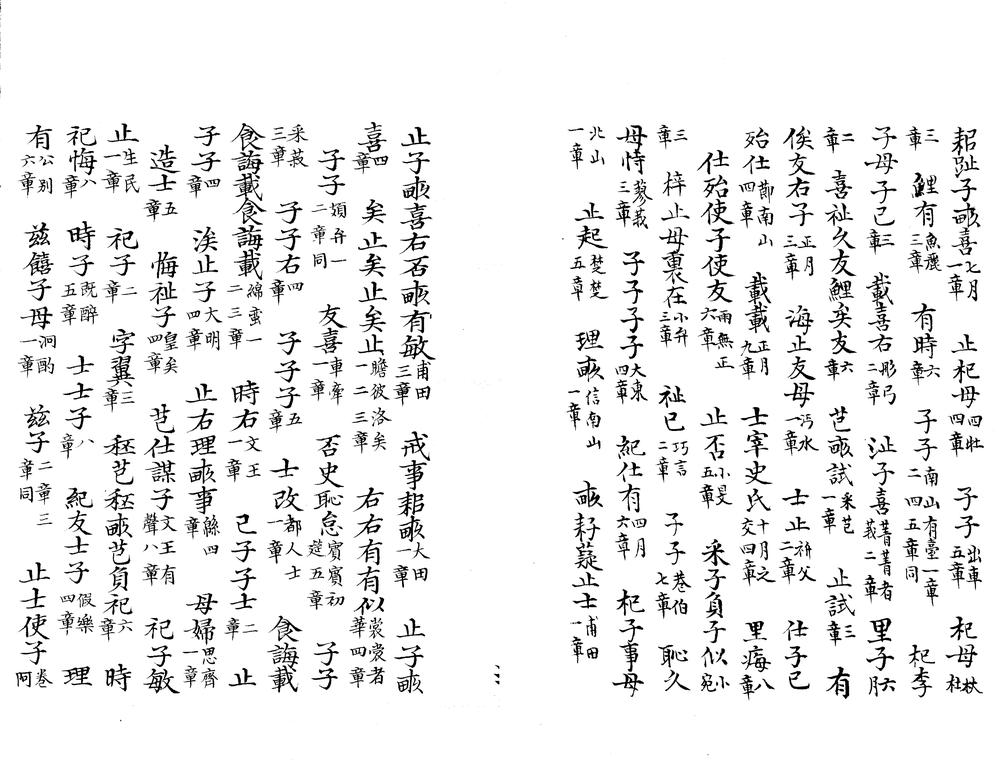 耜趾子畝喜七月一章　止杞母四牡四章　子子出車五章　杞母杕杜
三章　鯉有魚麗三章　有時六章　子子南山有臺一章二四五章同　杞李
子母子已三章　載喜右彤弓二章　沚子喜菁菁者莪二章　里子六月
二章　喜祉久友鯉矣友六章　芑畝試采芑一章　止試三章　有
俟友右子正月三章　海止友母沔水一章　士止祈父二章　仕子已
殆仕節南山四章　載載正月九章　士宰史氏十月之交四章　里痗八章
仕殆使子使友雨無正六章　止否小旻五章　采子負子似小宛
三章　梓止母裏在小弁三章　祉已巧言二章　子子巷伯七章　恥久
母恃蓼莪三章　子子子子大東四章　紀仕有四月六章　杞子事母
北山一章　止起楚楚五章　理畝信南山一章　畝耔薿止士甫田一章
止子畝喜右否畝有敏甫田三章　戒事耜畝大田一章　止子畝
喜四章　矣止矣止矣止瞻彼洛矣一二三章　右右有有似裳裳者華四章
子子頍弁一二章同　友喜車舝一章　否史恥怠賓賓初筵五章　子子
采菽三章　子子右四章　子子子五章　士改都人士一章　食誨載
食誨載食誨載綿蠻一二三章　時右文王一章　已子子士二章　止
子子四章　涘止子大明四章　止右理畝事緜四章　母婦思齊一章
造士五章　悔祉子皇矣四章　芑仕謀子文王有聲八章　祀子敏
止生民一章　祀子二章　字翼三章　秠芑秠畝芑負祀六章　時
祀悔八章　時子既醉五章　士士子八章　紀友士子假樂四章　理
有公劉六章　茲饎子母泂酌一章　茲子二章三章同　止士使子卷阿